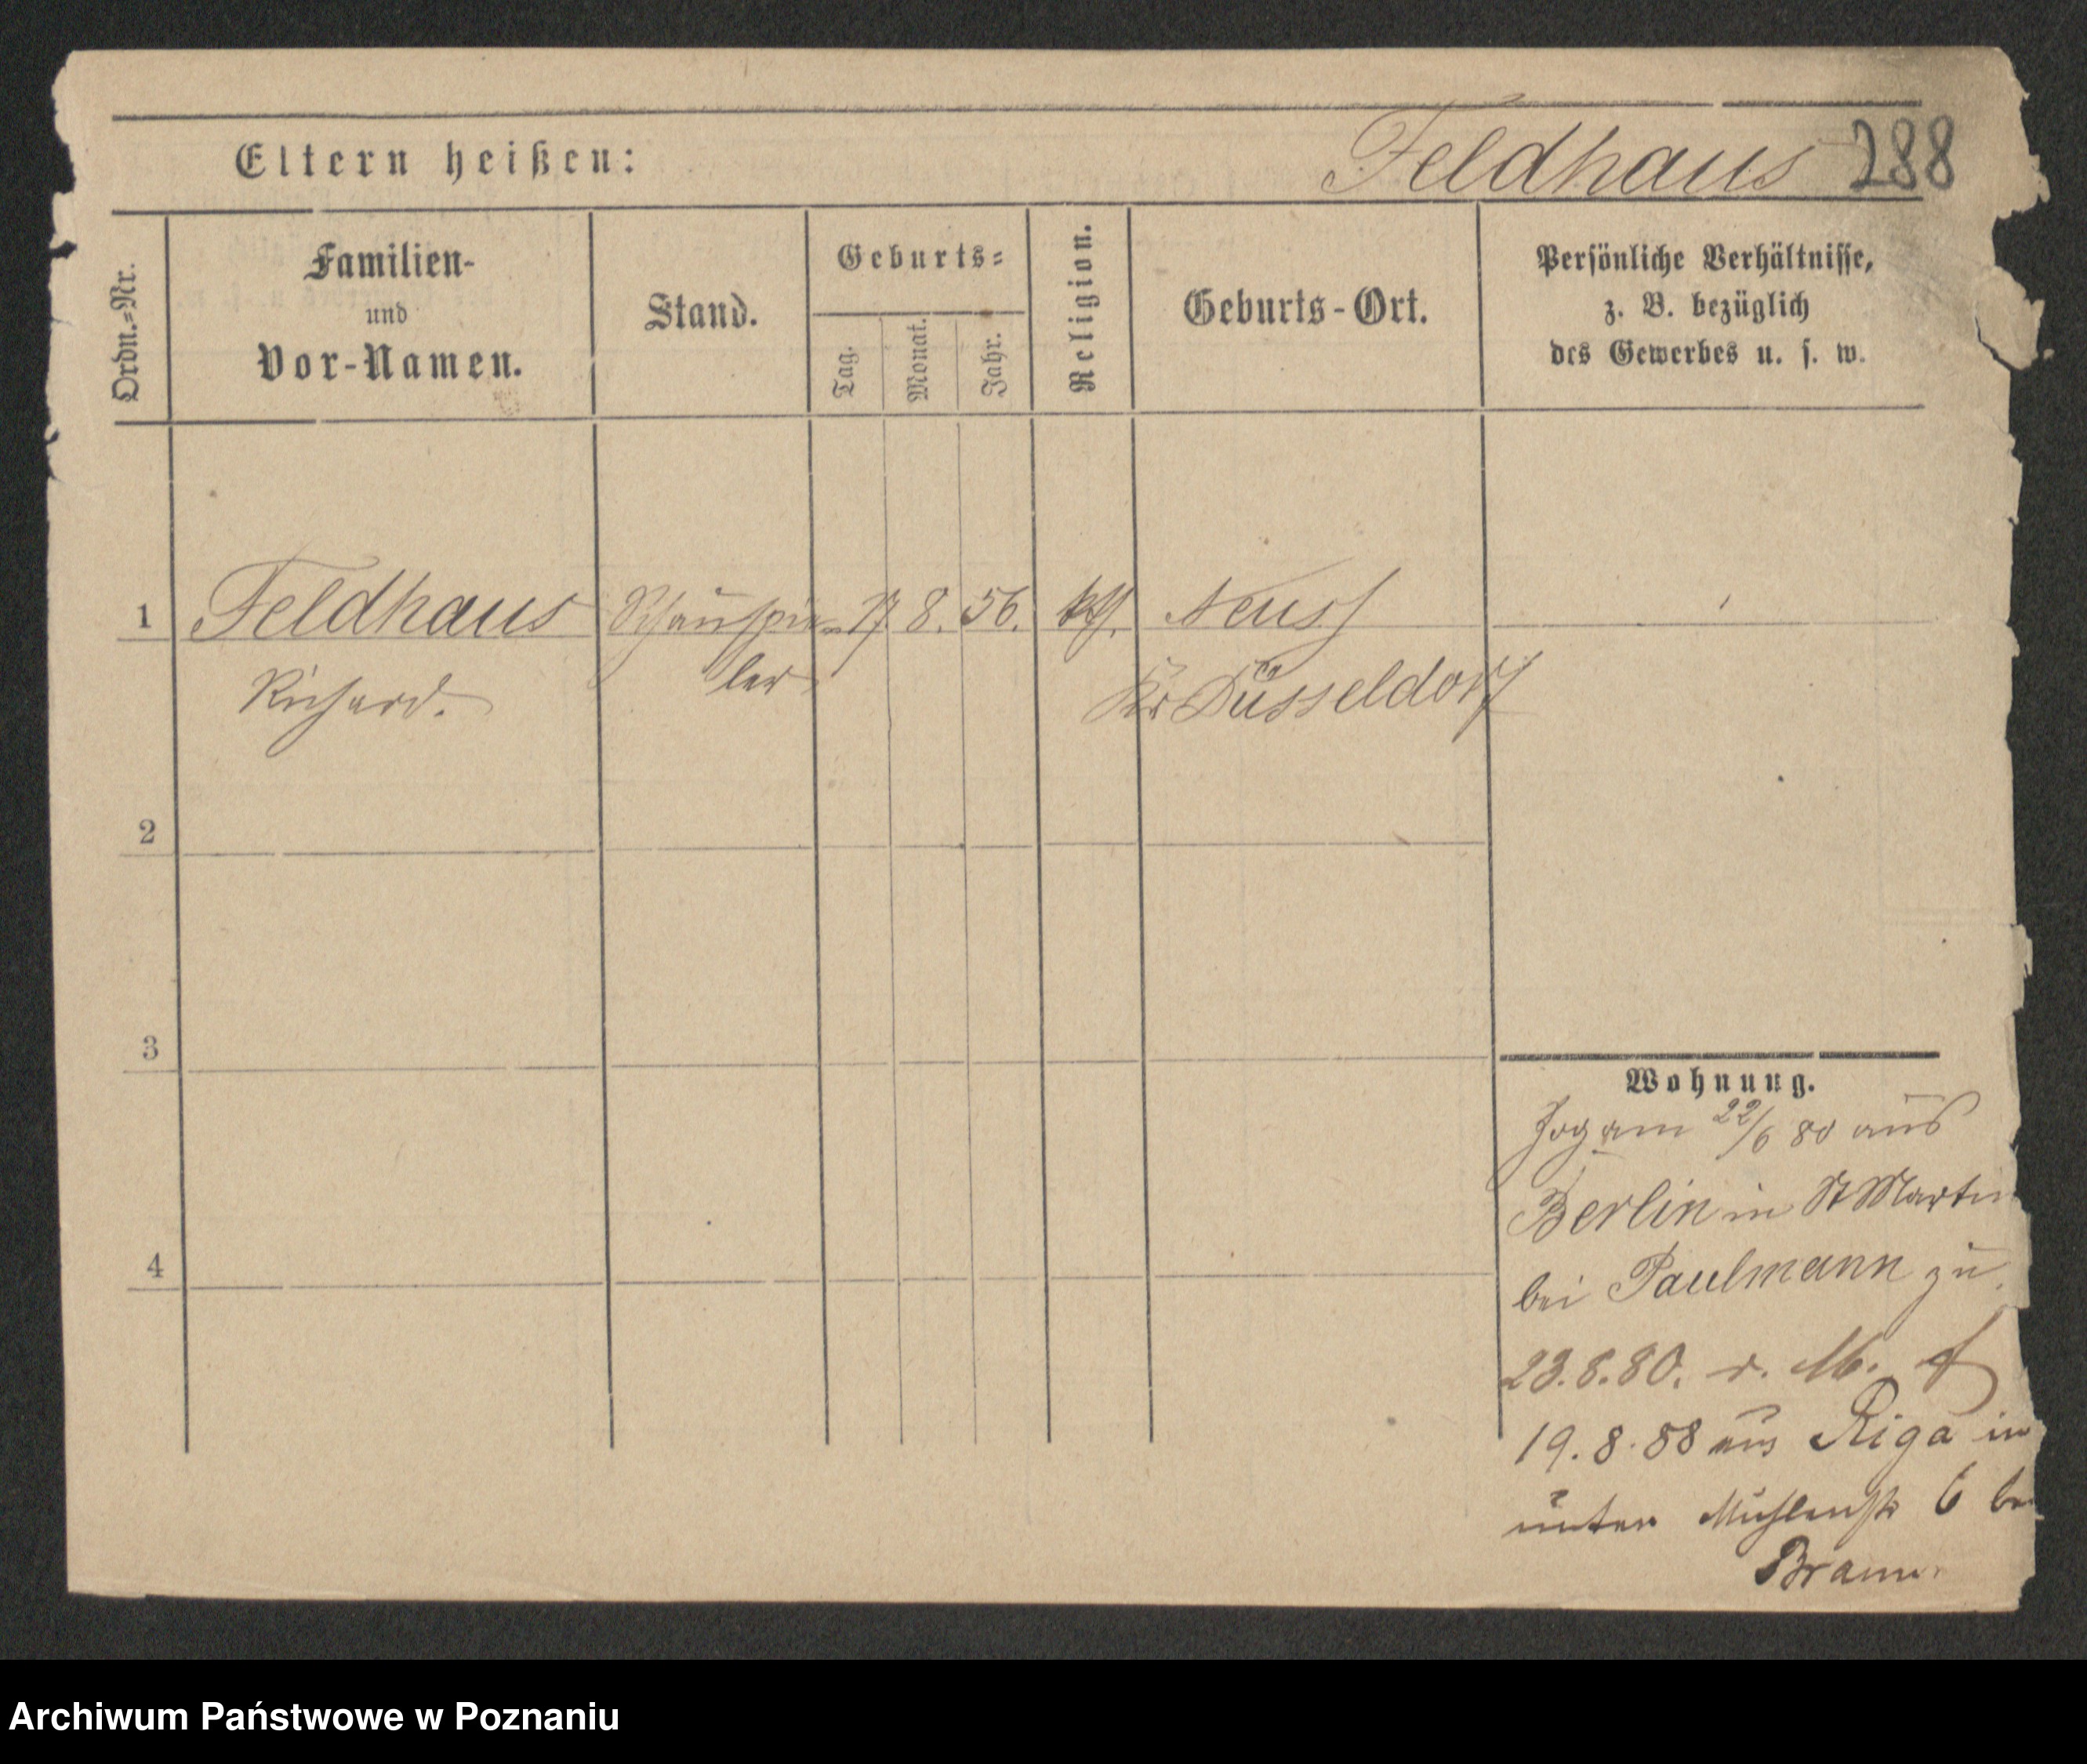 Eltern heißen:
Feldhaus 288
Ordn.=Nr.
Familien-
und
Vor-Namen.
Stand.
Geburts=
Tag.
Monat.
Jahr.
Religion.
Geburts-Ort.
Persönliche Verhältnisse,
z. B. bezüglich
des Gewerbes u. s. w.
1 Feldhaus Schauspie= 17. 8. 56. kth. Neuss
Richard. ler Kr Düsseldorf
2
3
4
Wohnung.
Zog am 22/6 80 aus
Berlin in St Martin
bei Paulmann zu.
23.6.80. v. M.
19.8.88 aus Riga in
unter Mühlenstr 6 bei
Braun.
Archiwum Państwowe w Poznaniu